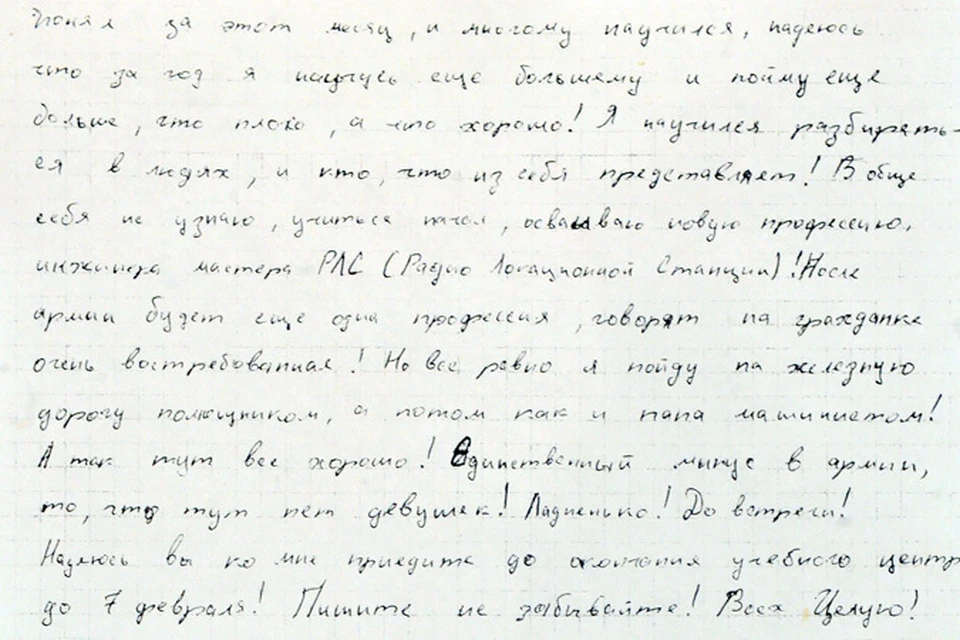 понял за этот месяц, и многому научился, надеюсь
что за год я научусь еще большему и пойму еще
больше, что плохо, а что хорошо! Я научился разбирать-
ся в людях, и кто, что из себя представляет! Вобще
себя не узнаю, учиться начал, осваиваю новую профессию,
инжинера мастера РЛС (Радио Локационной Станции)! После
армии будет еще одна профессия, говорят на гражданке
очень востребованная! Но все равно я пойду на железную
дорогу помощником, а потом как и папа машинистом!
А так тут все хорошо! Единственный минус в армии,
то, что тут нет девушек! Ладненько! До встречи!
Надеюсь вы ко мне приедите до окончания учебного центр
до 7 февраля! Пишите не забывайте! Всех Целую!